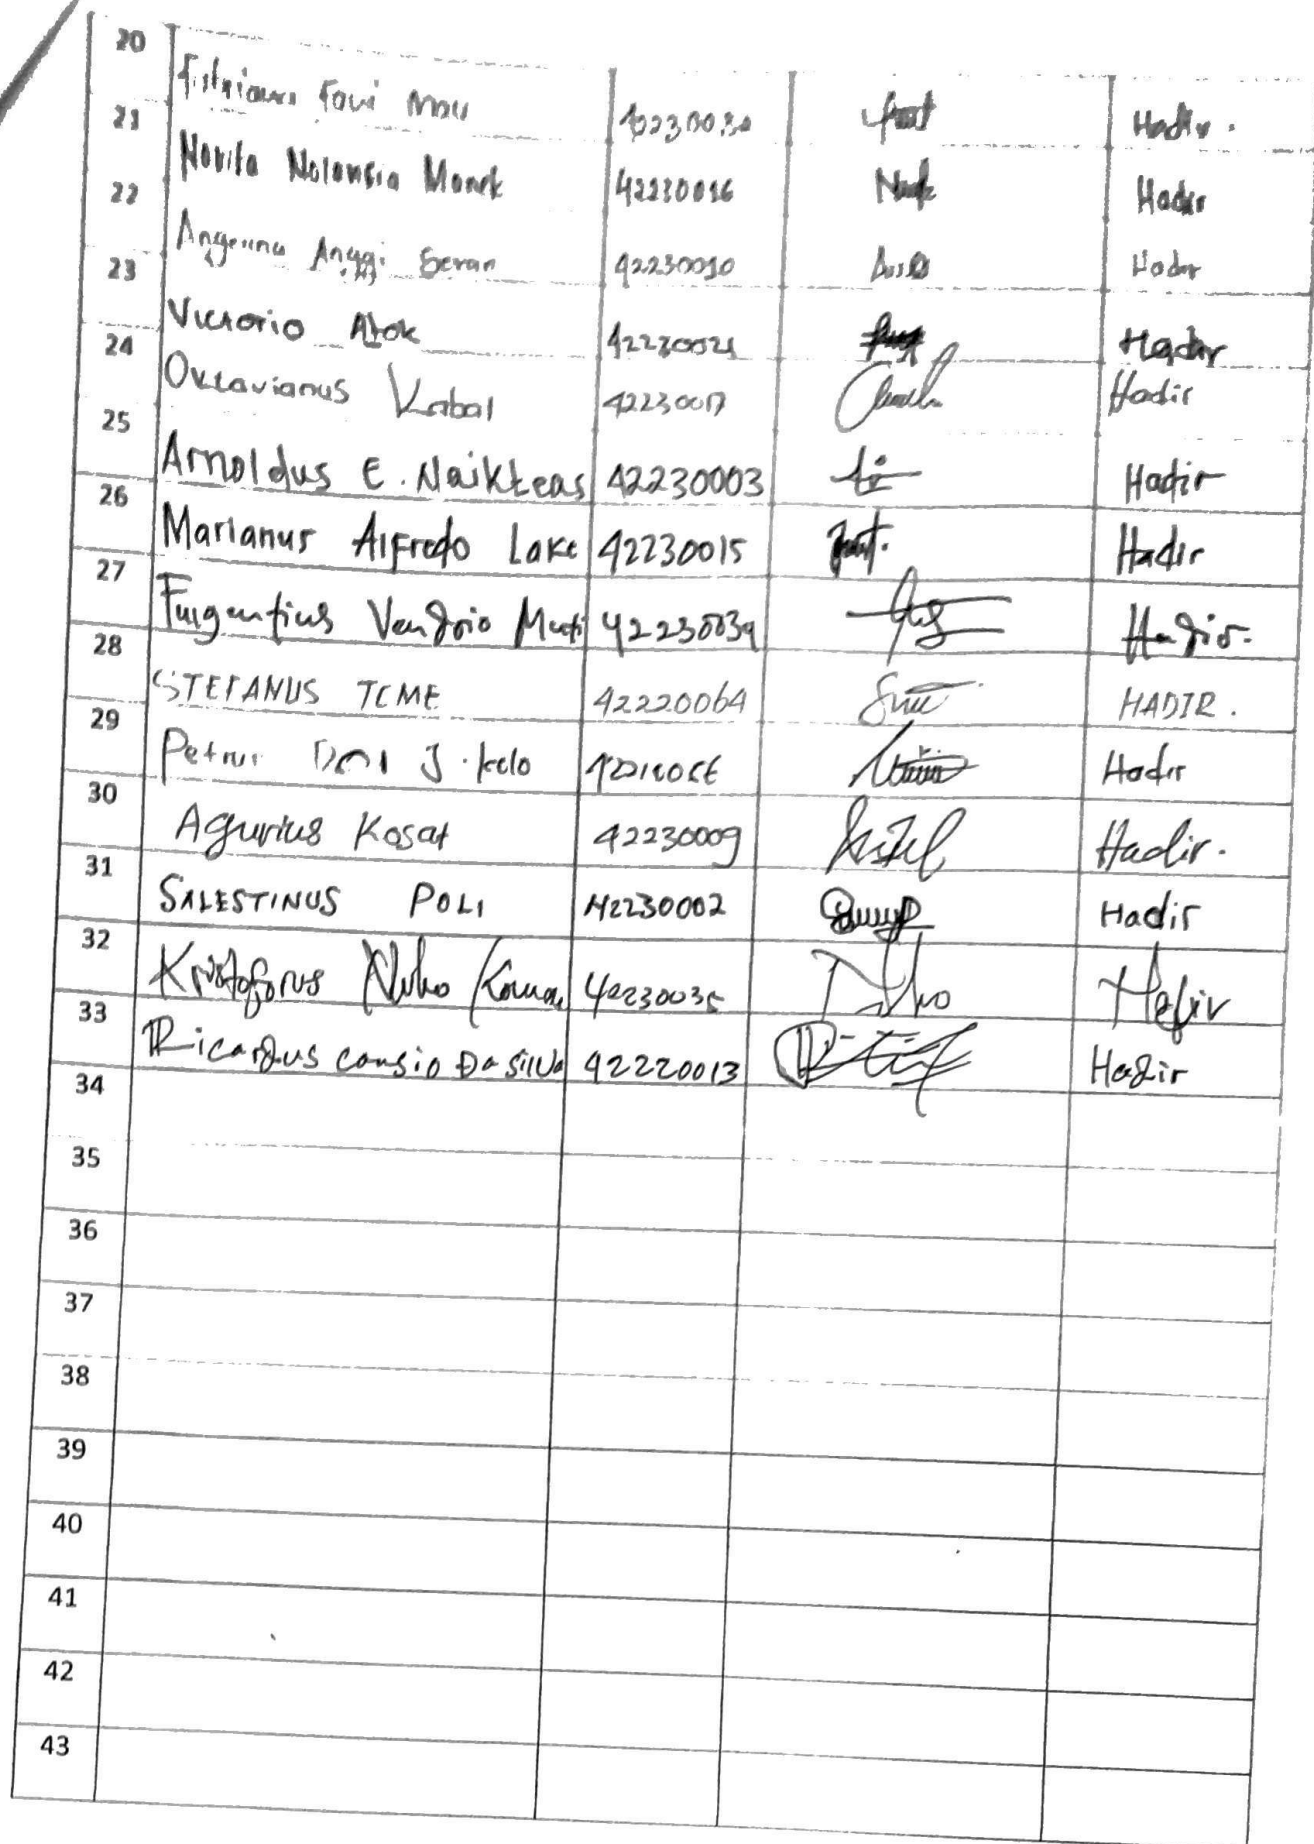 20 Mau 422300 Hadir.
21 Novita Nolansia Manek 42230016 Hadir
22 Anggi Seran 42230010 Hadir
23 Victorio Atok 42230021 Hadir
24 Oktavianus Kabal 42230017 Hadir
25 Arnoldus E. Naikteas 42230003 Hadir
26 Marianus Alfredo Lake 42230015 Hadir
27 Fulgentius Vendrio Meti 42230039 Hadir.
28 STEFANUS TEME 42220064 HADIR.
29 Petrus J. Kelo Hadir
30 Agurius Kosat 42230009 Hadir.
31 SALESTINUS POLI 42230002 Hadir
32 Kristoforus Niko 42230035 Hadir
33 Ricardus Cansio Da Silva 42220013 Hadir
34
35
36
37
38
39
40
41
42
43